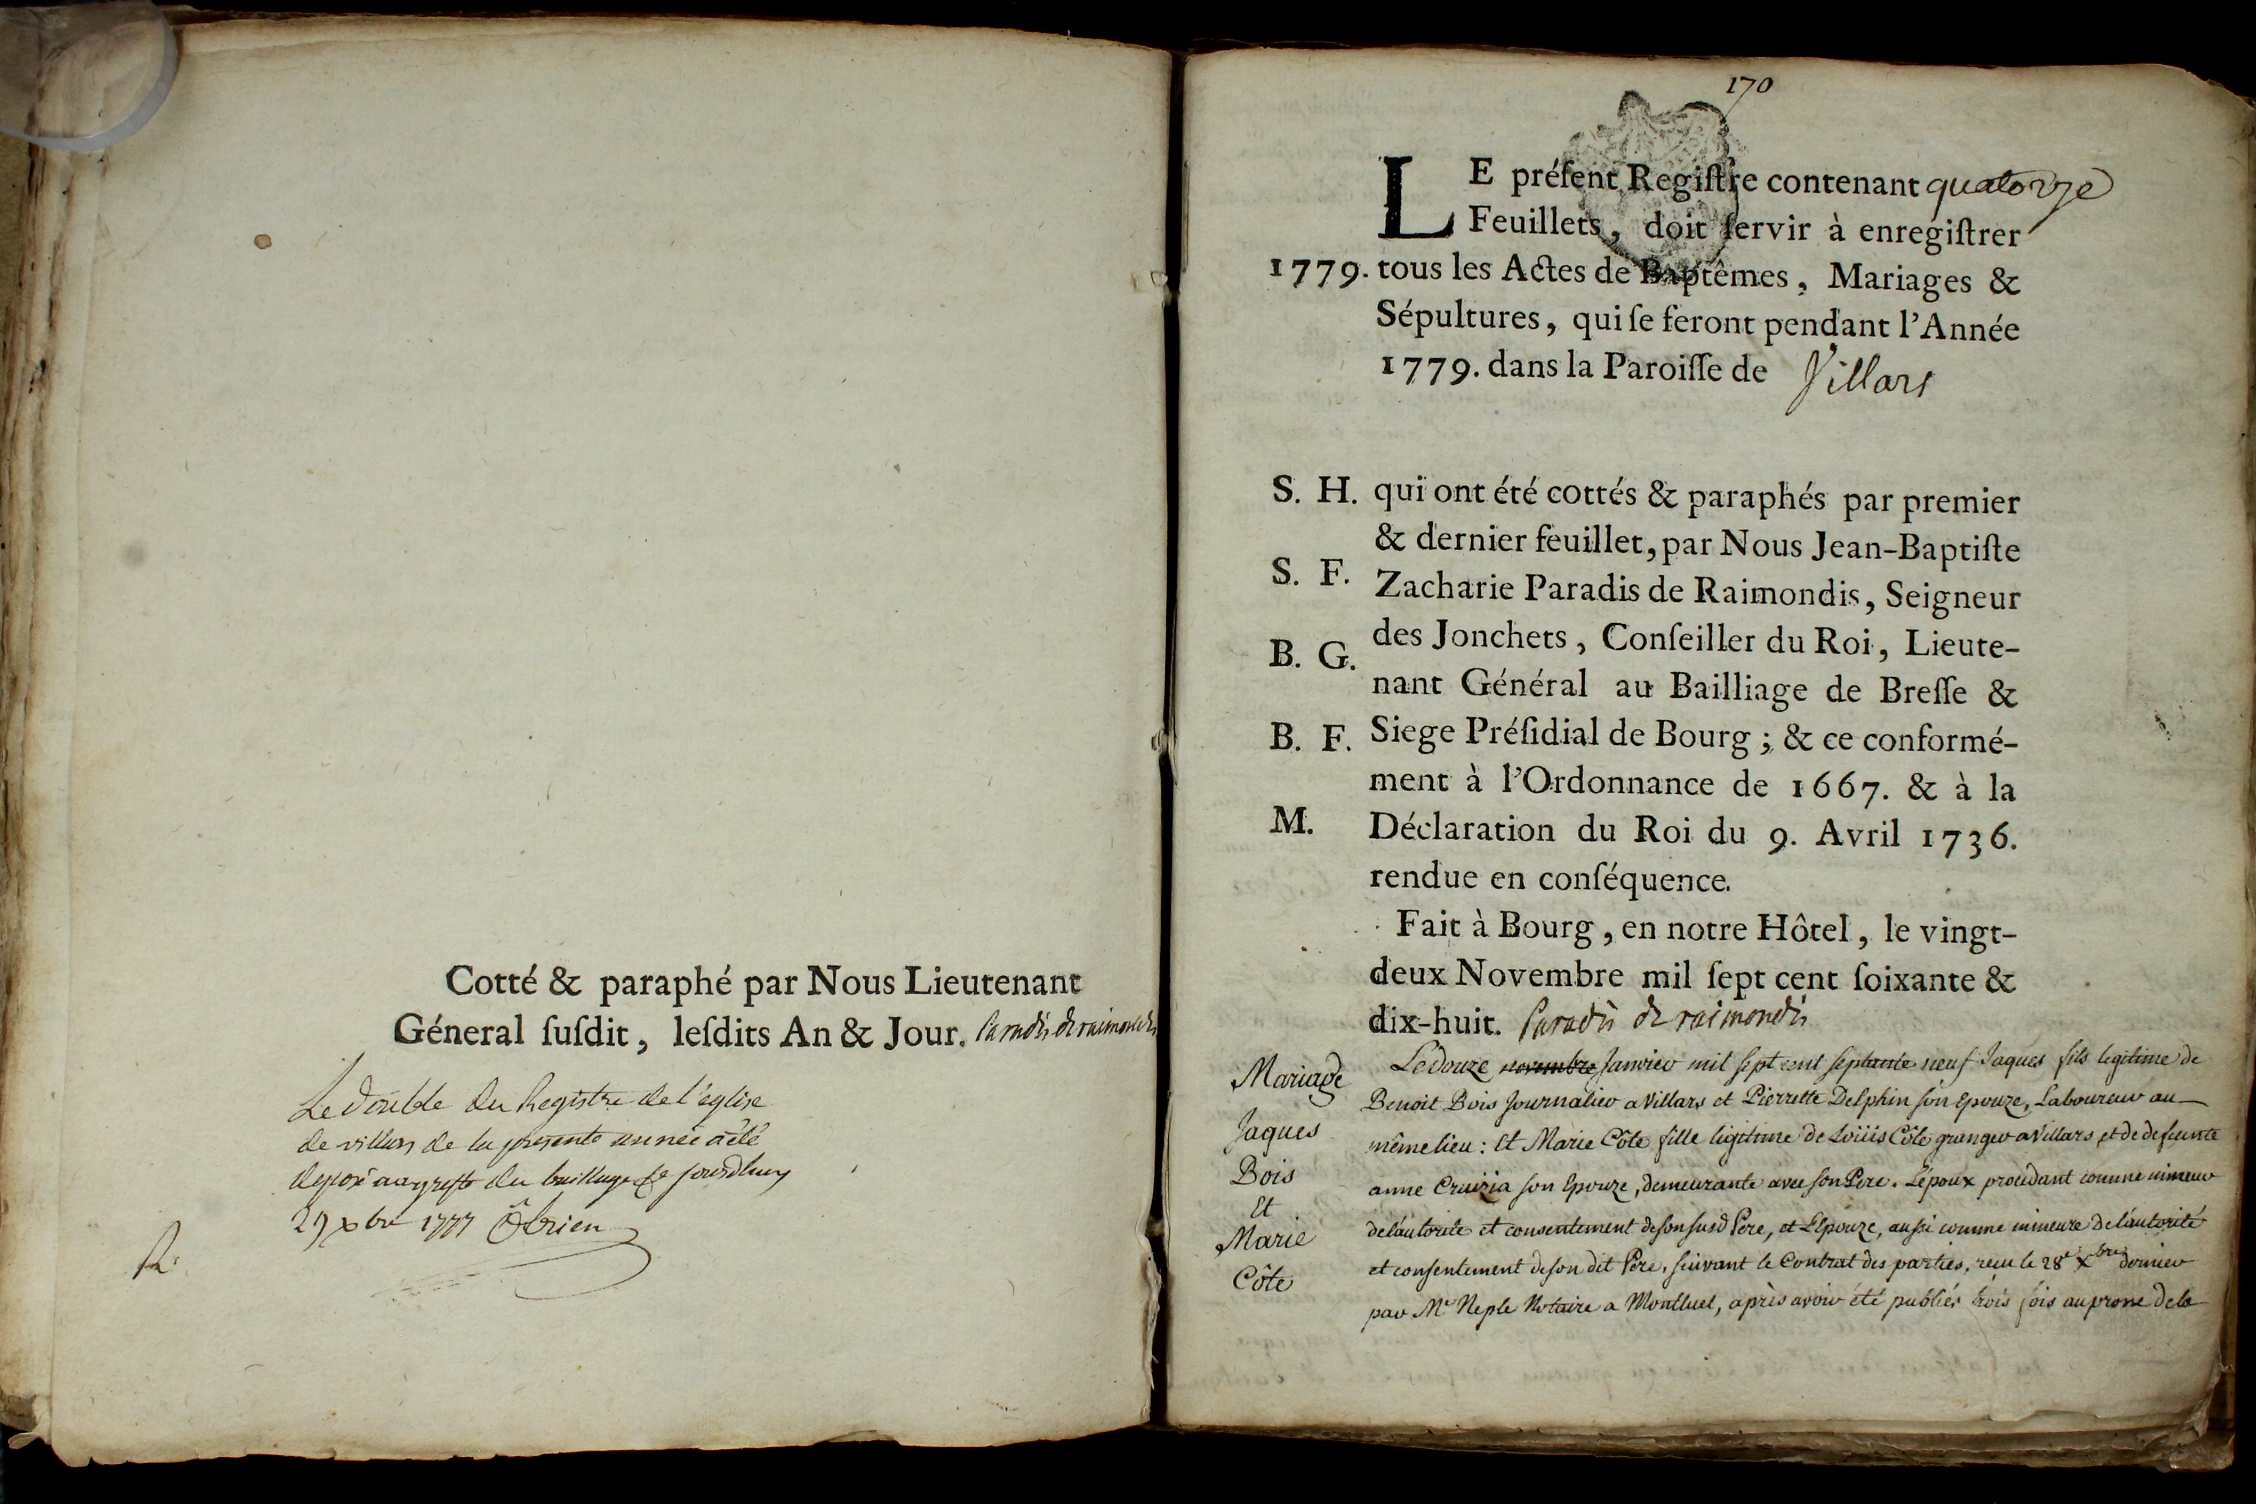 Cotté & paraphé par Nous Lieutenant
Géneral suſdit, leſdits An & Jour. Paradis de raimondis
Le double du Registre de l'église
de villars de la presente année a été
deposé au greffe du bailliage ce jourdhuy
29 xbre 1777 Obrien
R.
170
LE préſent Regiſtre contenant quatorze
Feuillets, doit ſervir à enregiſtrer
1779. tous les Actes de Baptêmes, Mariages &
Sépultures, qui ſe feront pendant l'Année
1779. dans la Paroiſſe de Villars
S. H. qui ont été cottés & paraphés par premier
& dernier feuillet, par Nous Jean-Baptiſte
S. F. Zacharie Paradis de Raimondis, Seigneur
des Jonchets, Conſeiller du Roi, Lieute-
B. G. nant Général au Bailliage de Breſſe &
B. F. Siege Préſidial de Bourg ; & ce conformé-
ment à l'Ordonnance de 1667. & à la
M. Déclaration du Roi du 9. Avril 1736.
rendue en conſéquence.
Fait à Bourg, en notre Hôtel, le vingt-
deux Novembre mil ſept cent ſoixante &
dix-huit. Paradis de raimondis
Mariage
Jaques
Bois
Et
Marie
Côte
Le douze novembre Janvier mil sept cent septante neuf Jaques fils legitime de
Benoit Bois Journalier a Villars et Pierrette Delphin son Epouze, Laboureur au
même lieu : Et Marie Côte fille legitime de Loüis Côte granger a Villars, et de defunte
anne Cruizia son Epouze, demeurante avec son Pere. L'époux procédant comme mineur
de l'autorité et consentement de son susd Pere, et L'Epouze, aussi comme mineure de l'autorité
et consentement de son dit Pere, suivant le Contrat des parties, recu le 28e Xbre dernier
par Me Neple Notaire a Montluel, après avoir été publiés trois fois au prone de la